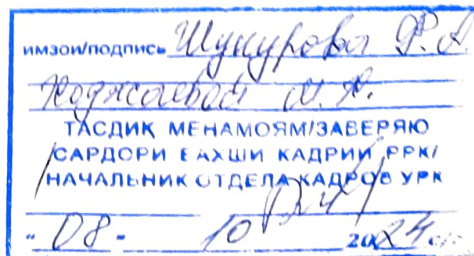 имзои/подпись Шукурова Р. А
Ходжаевой М. К.
ТАСДИҚ МЕНАМОЯМ/ЗАВЕРЯЮ
САРДОРИ БАХШИ КАДРИИ РРК/
НАЧАЛЬНИК ОТДЕЛА КАДРОВ УРК
" 08 " 10 2024